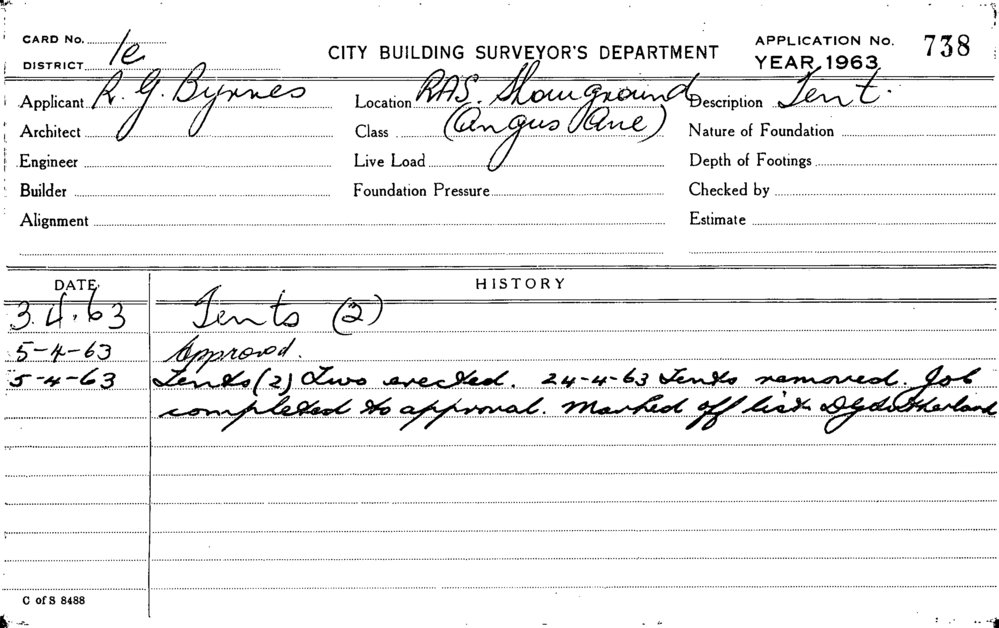 CARD No. 1e
DISTRICT
CITY BUILDING SURVEYOR'S DEPARTMENT
APPLICATION No. 738
YEAR 1963
Applicant R. G. Byrnes Location RAS. Showground Description Tent.
Architect Class (Angus Ave) Nature of Foundation
Engineer Live Load Depth of Footings
Builder Foundation Pressure Checked by
Alignment Estimate
DATE HISTORY
3.4.63 Tents (2)
5-4-63 Approved.
5-4-63 Tents (2) Two erected. 24-4-63 Tents removed. Job
completed to approval. Marked off list. DG Sutherland
C of S 8488